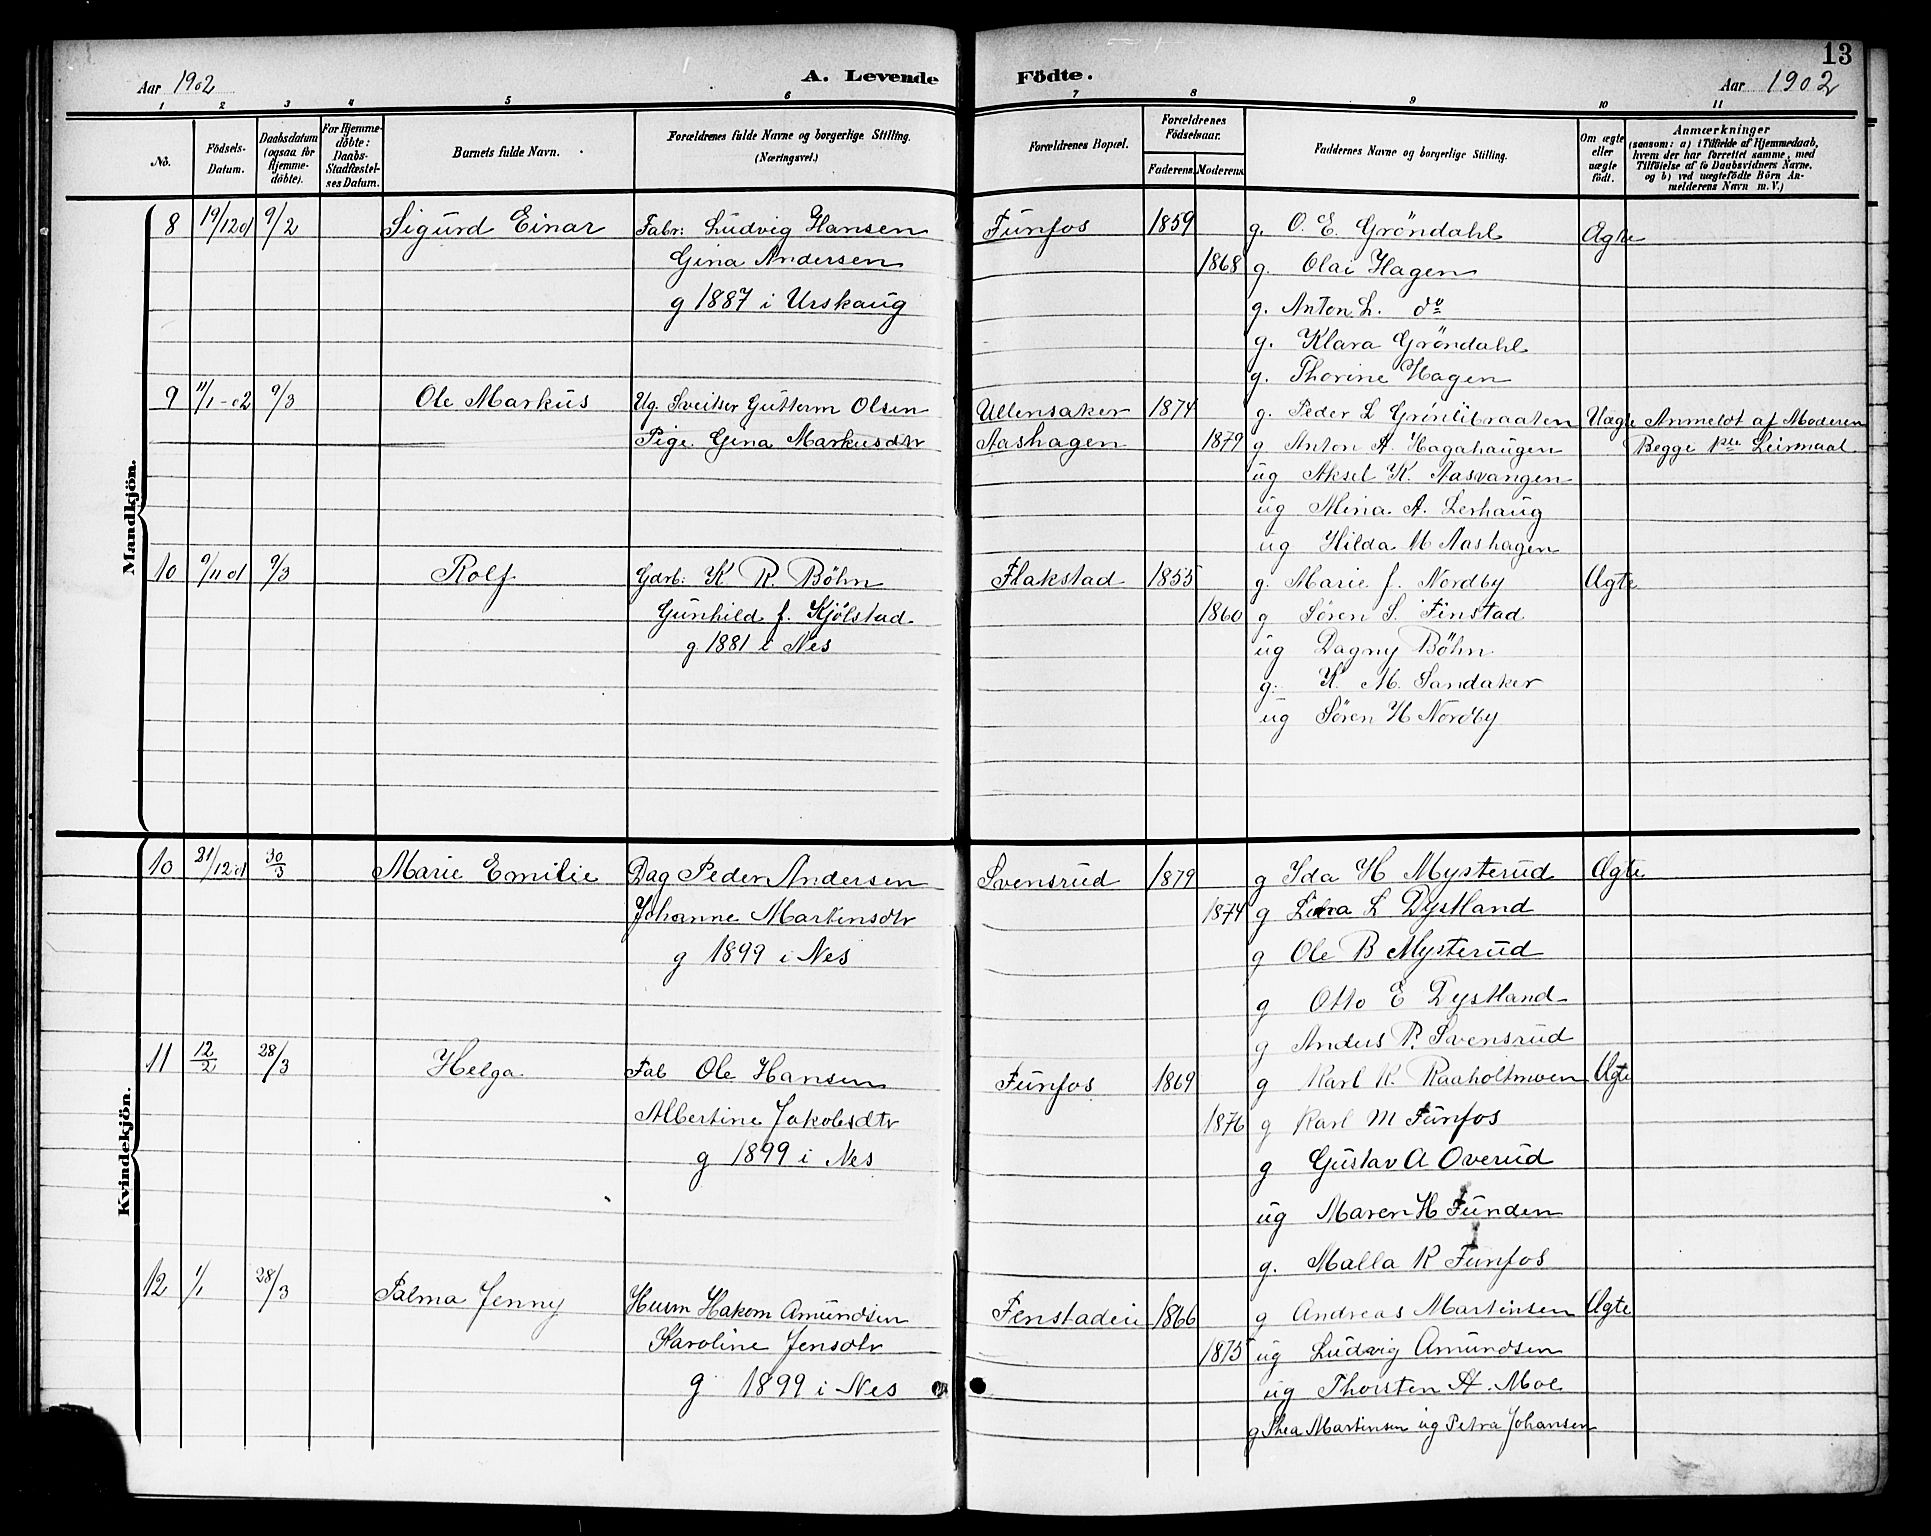 13
Aar 1902
A. Levende Födte.
Aar 1902
1 2 3 4 5 6 7 8 9 10 11
No.
Födsels-Datum.
Daabsdatum (ogsaa for Hjemme-döbte).
For Hjemme-döbte: Daabs-Stadfæstel-ses Datum.
Barnets fulde Navn.
Forældrenes fulde Navne og borgerlige Stilling. (Næringsvei.)
Forældrenes Bopæl.
Forældrenes Födselsaar.
Faderens. Moderens.
Faddernes Navne og borgerlige Stilling.
Om ægte eller uægte födt.
Anmærkninger
(saasom: a) i Tilfælde af Hjemmedaab, hvem der har forrettet samme, med Tilföielse af to Daabsvidners Navne, og b) ved uægtefödte Börn An-melderens Navn m. V.)
Mandkjön.
8 19/12 01 9/2 Sigurd Einar Fabr: Ludvig Hansen Funfos 1859 g. O. E. Gröndahl Ægte
Gina Andersen 1868 g. Olai Hagen
g 1887 i Urskaug g. Anton L. do
g. Klara Gröndahl
g. Thorine Hagen
9 11/1-02 9/3 Ole Markus Ug. Sveitser Guttorm Olsen Ullensaker 1874 g. Peder L Grönlibraaten Uægte Anmeldt af Moderen
Pige. Gina Markusdtr Aashagen 1879 g Anton A. Hagahaugen Begge 1ste Leirmaal
ug Aksel K. Aasvangen
ug Mina A. Lerhaug
ug Hilda M Aashagen
10 9/11 01 9/3 Rolf Gdrb: K R. Böhn Flakstad 1855 g. Marie f. Nordby Ægte
Gunhild f. Kjölstad 1860 g Sören S. Finstad
g 1881 i Nes ug Dagny Böhn
g. K. M. Sandaker
ug Sören H Nordby
Kvindekjön.
10 21/12 01 30/3 Marie Emilie Dag Peder Andersen Svensrud 1879 g Ida H Mysterud Ægte
Johanne Martinsdtr 1874 g L Dystland
g 1899 i Nes g Ole B Mysterud
g Otto E Dystland
g Anders P. Svensrud
11 12/2 28/3 Helga Fab Ole Hansen Funfos 1869 g Karl K. Raaholtmoen Ægte
Albertine Jakobsdtr 1876 g Karl M Funfos
g 1899 i Nes g Gustav A Overud
ug Maren H Funden
g. Malla K Funfos
12 1/1 28/3 Palma Jenny Husm Hakon Amundsen Fenstadei 1866 g Andreas Martinsen Ægte
Karoline Jensdtr 1875 ug Ludvig Amundsen
g 1899 i Nes ug Thorsten A. Moe
g Thea Martinsen ug Petra Johansen